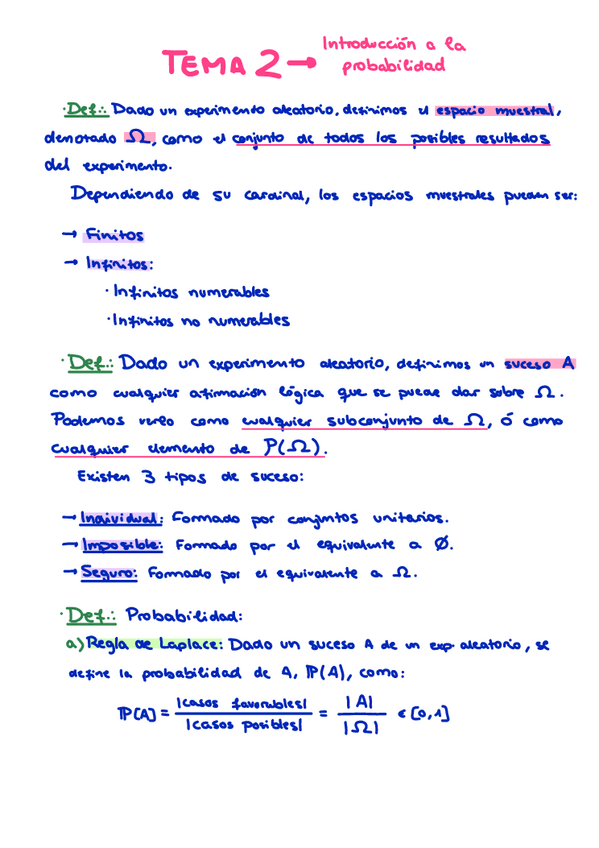 TEMA 2 → Introducción a la
probabilidad
· Def.: Dado un experimento aleatorio, definimos el espacio muestral,
denotado Ω, como el conjunto de todos los posibles resultados
del experimento.
Dependiendo de su cardinal, los espacios muestrales pueden ser:
→ Finitos
→ Infinitos:
· Infinitos numerables
· Infinitos no numerables
· Def.: Dado un experimento aleatorio, definimos un suceso A
como cualquier afirmación lógica que se puede dar sobre Ω.
Podemos verlo como cualquier subconjunto de Ω, ó como
cualquier elemento de P(Ω).
Existen 3 tipos de suceso:
→ Individual: Formado por conjuntos unitarios.
→ Imposible: Formado por el equivalente a Ø.
→ Seguro: Formado por el equivalente a Ω.
· Def.: Probabilidad:
a) Regla de Laplace: Dado un suceso A de un exp. aleatorio, se
define la probabilidad de A, ℙ(A), como:
ℙ[A] = |casos favorables| / |casos posibles| = |A| / |Ω| ∈ [0,1]